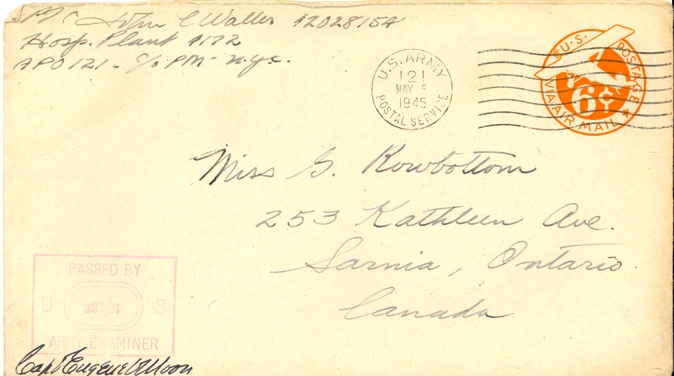 John C Waller 42028154
Hosp. Plant 4172
APO 121 - c/o PM - N.Y.C.
U.S. ARMY
121
MAY 5
1945
POSTAL SERVICE
U.S. POSTAGE
6¢
VIA AIR MAIL
Miss G. Rowbottom
253 Kathleen Ave.
Sarnia, Ontario.
Canada
PASSED BY
U S
ARMY EXAMINER
Capt Eugene Moon